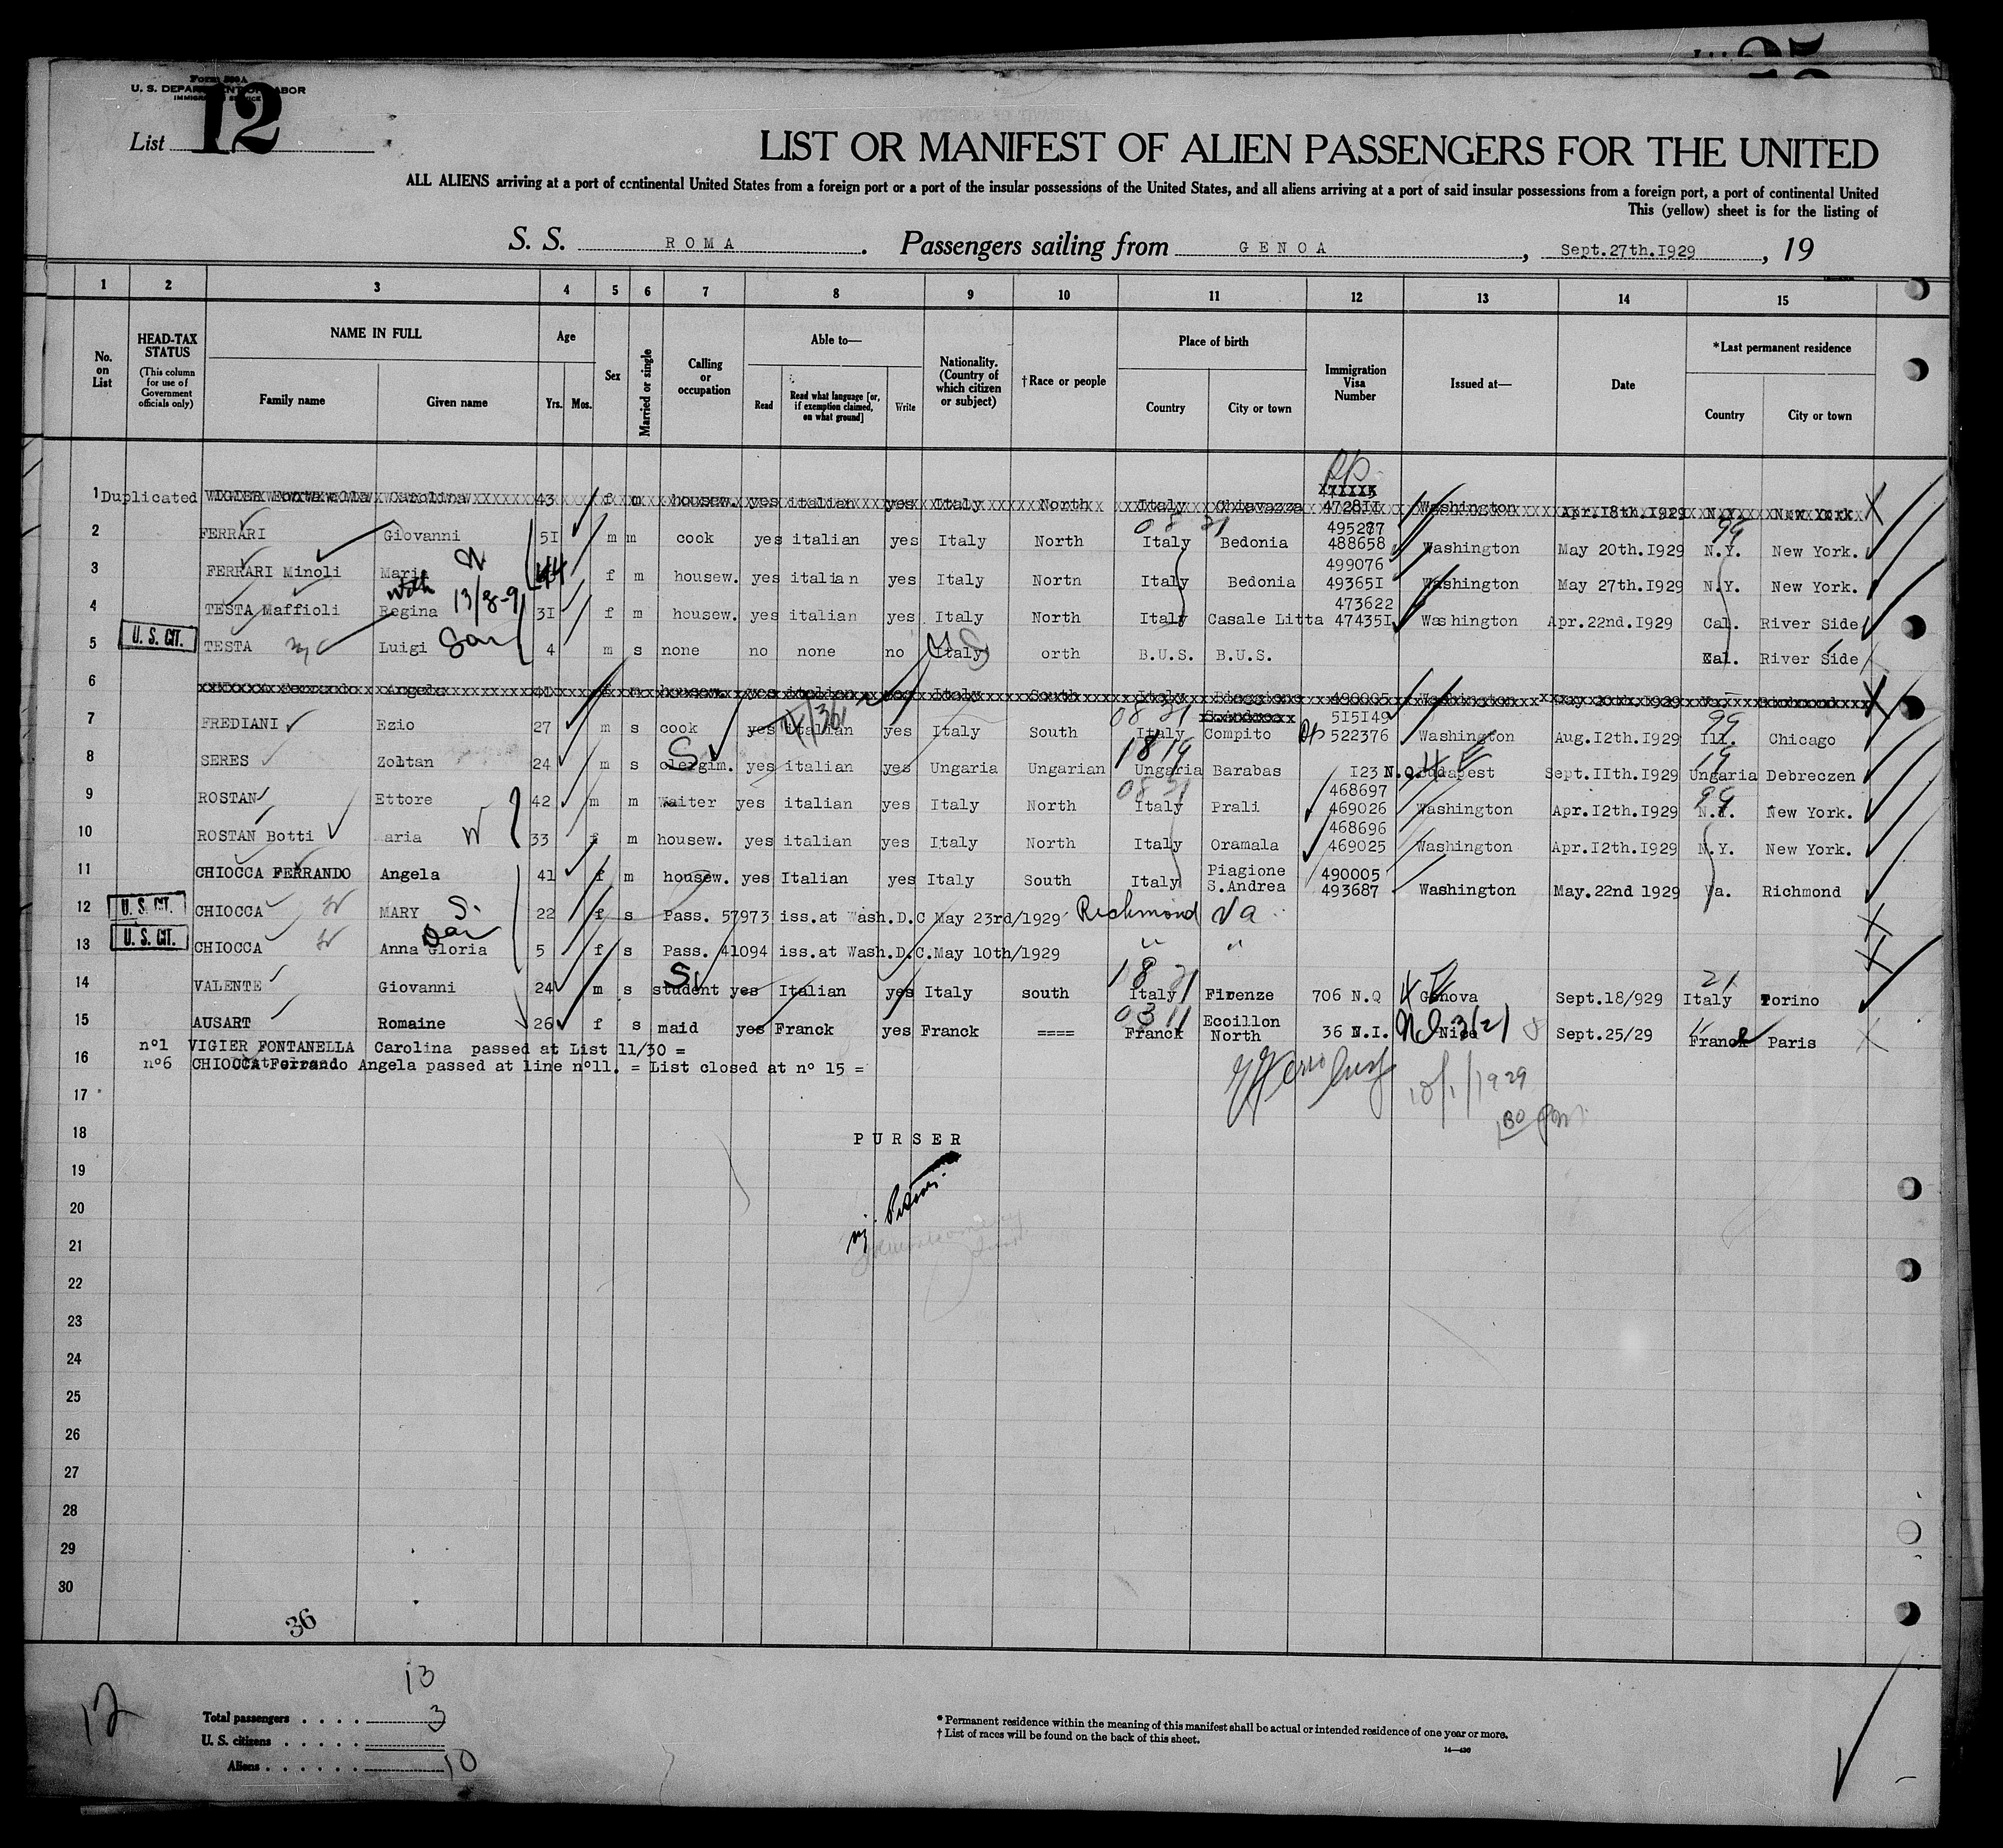 Form 500 A
U. S. DEPARTMENT OF LABOR
IMMIGRATION SERVICE
List 12
LIST OR MANIFEST OF ALIEN PASSENGERS FOR THE UNITED
ALL ALIENS arriving at a port of continental United States from a foreign port or a port of the insular possessions of the United States, and all aliens arriving at a port of said insular possessions from a foreign port, a port of continental United
This (yellow) sheet is for the listing of
S. S. ROMA. Passengers sailing from GENOA, Sept.27th.I929, 19
1 2 3 4 5 6 7 8 9 10 11 12 13 14 15
No. on List
HEAD-TAX STATUS (This column for use of Government officials only)
NAME IN FULL Family name Given name
Age Yrs. Mos.
Sex
Married or single
Calling or occupation
Able to— Read Read what language [or, if exemption claimed, on what ground] Write
Nationality. (Country of which citizen or subject)
†Race or people
Place of birth Country City or town
Immigration Visa Number
Issued at—
Date
*Last permanent residence Country City or town
1 Duplicated VIGIER Carolina 43 f m housew. yes italian yes Italy North Italy Chiavazza 4728II Washington Apr.I8th.I929 N.Y. New York
2 FERRARI Giovanni 5I m m cook yes italian yes Italy North Italy Bedonia 495287 488658 Washington May 20th.I929 N.Y. New York.
3 FERRARI Minoli Maria W 44 f m housew. yes italian yes Italy Nortn Italy Bedonia 499076 49365I Washington May 27th.I929 N.Y. New York.
4 TESTA Maffioli Regina with 13/8-9 3I f m housew. yes italian yes Italy North Italy Casale Litta 473622 47435I Washington Apr.22nd.I929 Cal. River Side
5 U. S. CIT. TESTA Luigi Son 4 m s none no none no Italy US orth B.U.S. B.U.S. Cal. River Side
6 Angela 4I f m housew. yes italian yes Italy South Italy 490005 Washington May 20th.I929 Va. Richmond
7 FREDIANI Ezio 27 m s cook yes italian yes Italy South Italy Compito 5I5I49 522376 Washington Aug.I2th.I929 Ill. Chicago
8 SERES Zoltan 24 m s clergim. yes italian yes Ungaria Ungarian Ungaria Barabas I23 N.Q. Budapest Sept.IIth.I929 Ungaria Debreczen
9 ROSTAN Ettore 42 m m Waiter yes italian yes Italy North Italy Prali 468697 469026 Washington Apr.I2th.I929 N.Y. New York.
10 ROSTAN Botti aria W 33 f m housew. yes italian yes Italy North Italy Oramala 468696 469025 Washington Apr.I2th.I929 N.Y. New York.
11 CHIOCCA FERRANDO Angela 41 f m housew. yes Italian yes Italy South Italy Piagione S.Andrea 490005 493687 Washington May.22nd 1929 Va. Richmond
12 U. S. CIT. CHIOCCA MARY S. 22 f s Pass. 57973 iss.at Wash.D.C May 23rd/1929 Richmond Va
13 U. S. CIT. CHIOCCA Anna Gloria Dau 5 f s Pass. 41094 iss.at Wash.D.C.May 10th/1929 " "
14 VALENTE Giovanni 24 m s student yes Italian yes Italy south Italy Firenze 706 N.Q Genova Sept.18/929 Italy Torino
15 AUSART Romaine 26 f s maid yes Franck yes Franck ==== Franck Ecoillon North 36 N.I. Nice Sept.25/29 Franck Paris
n°1 VIGIER FONTANELLA Carolina passed at List 11/30 =
16 n°6 CHIOCCA Ferrando Angela passed at line n°11. = List closed at n° 15 =
10/1/1929
17
18 PURSER
19
20
21
22
23
24
25
26
27
28
29
30
36
12
13
Total passengers 3
U. S. citizens
Aliens 10
* Permanent residence within the meaning of this manifest shall be actual or intended residence of one year or more.
† List of races will be found on the back of this sheet.
14—430